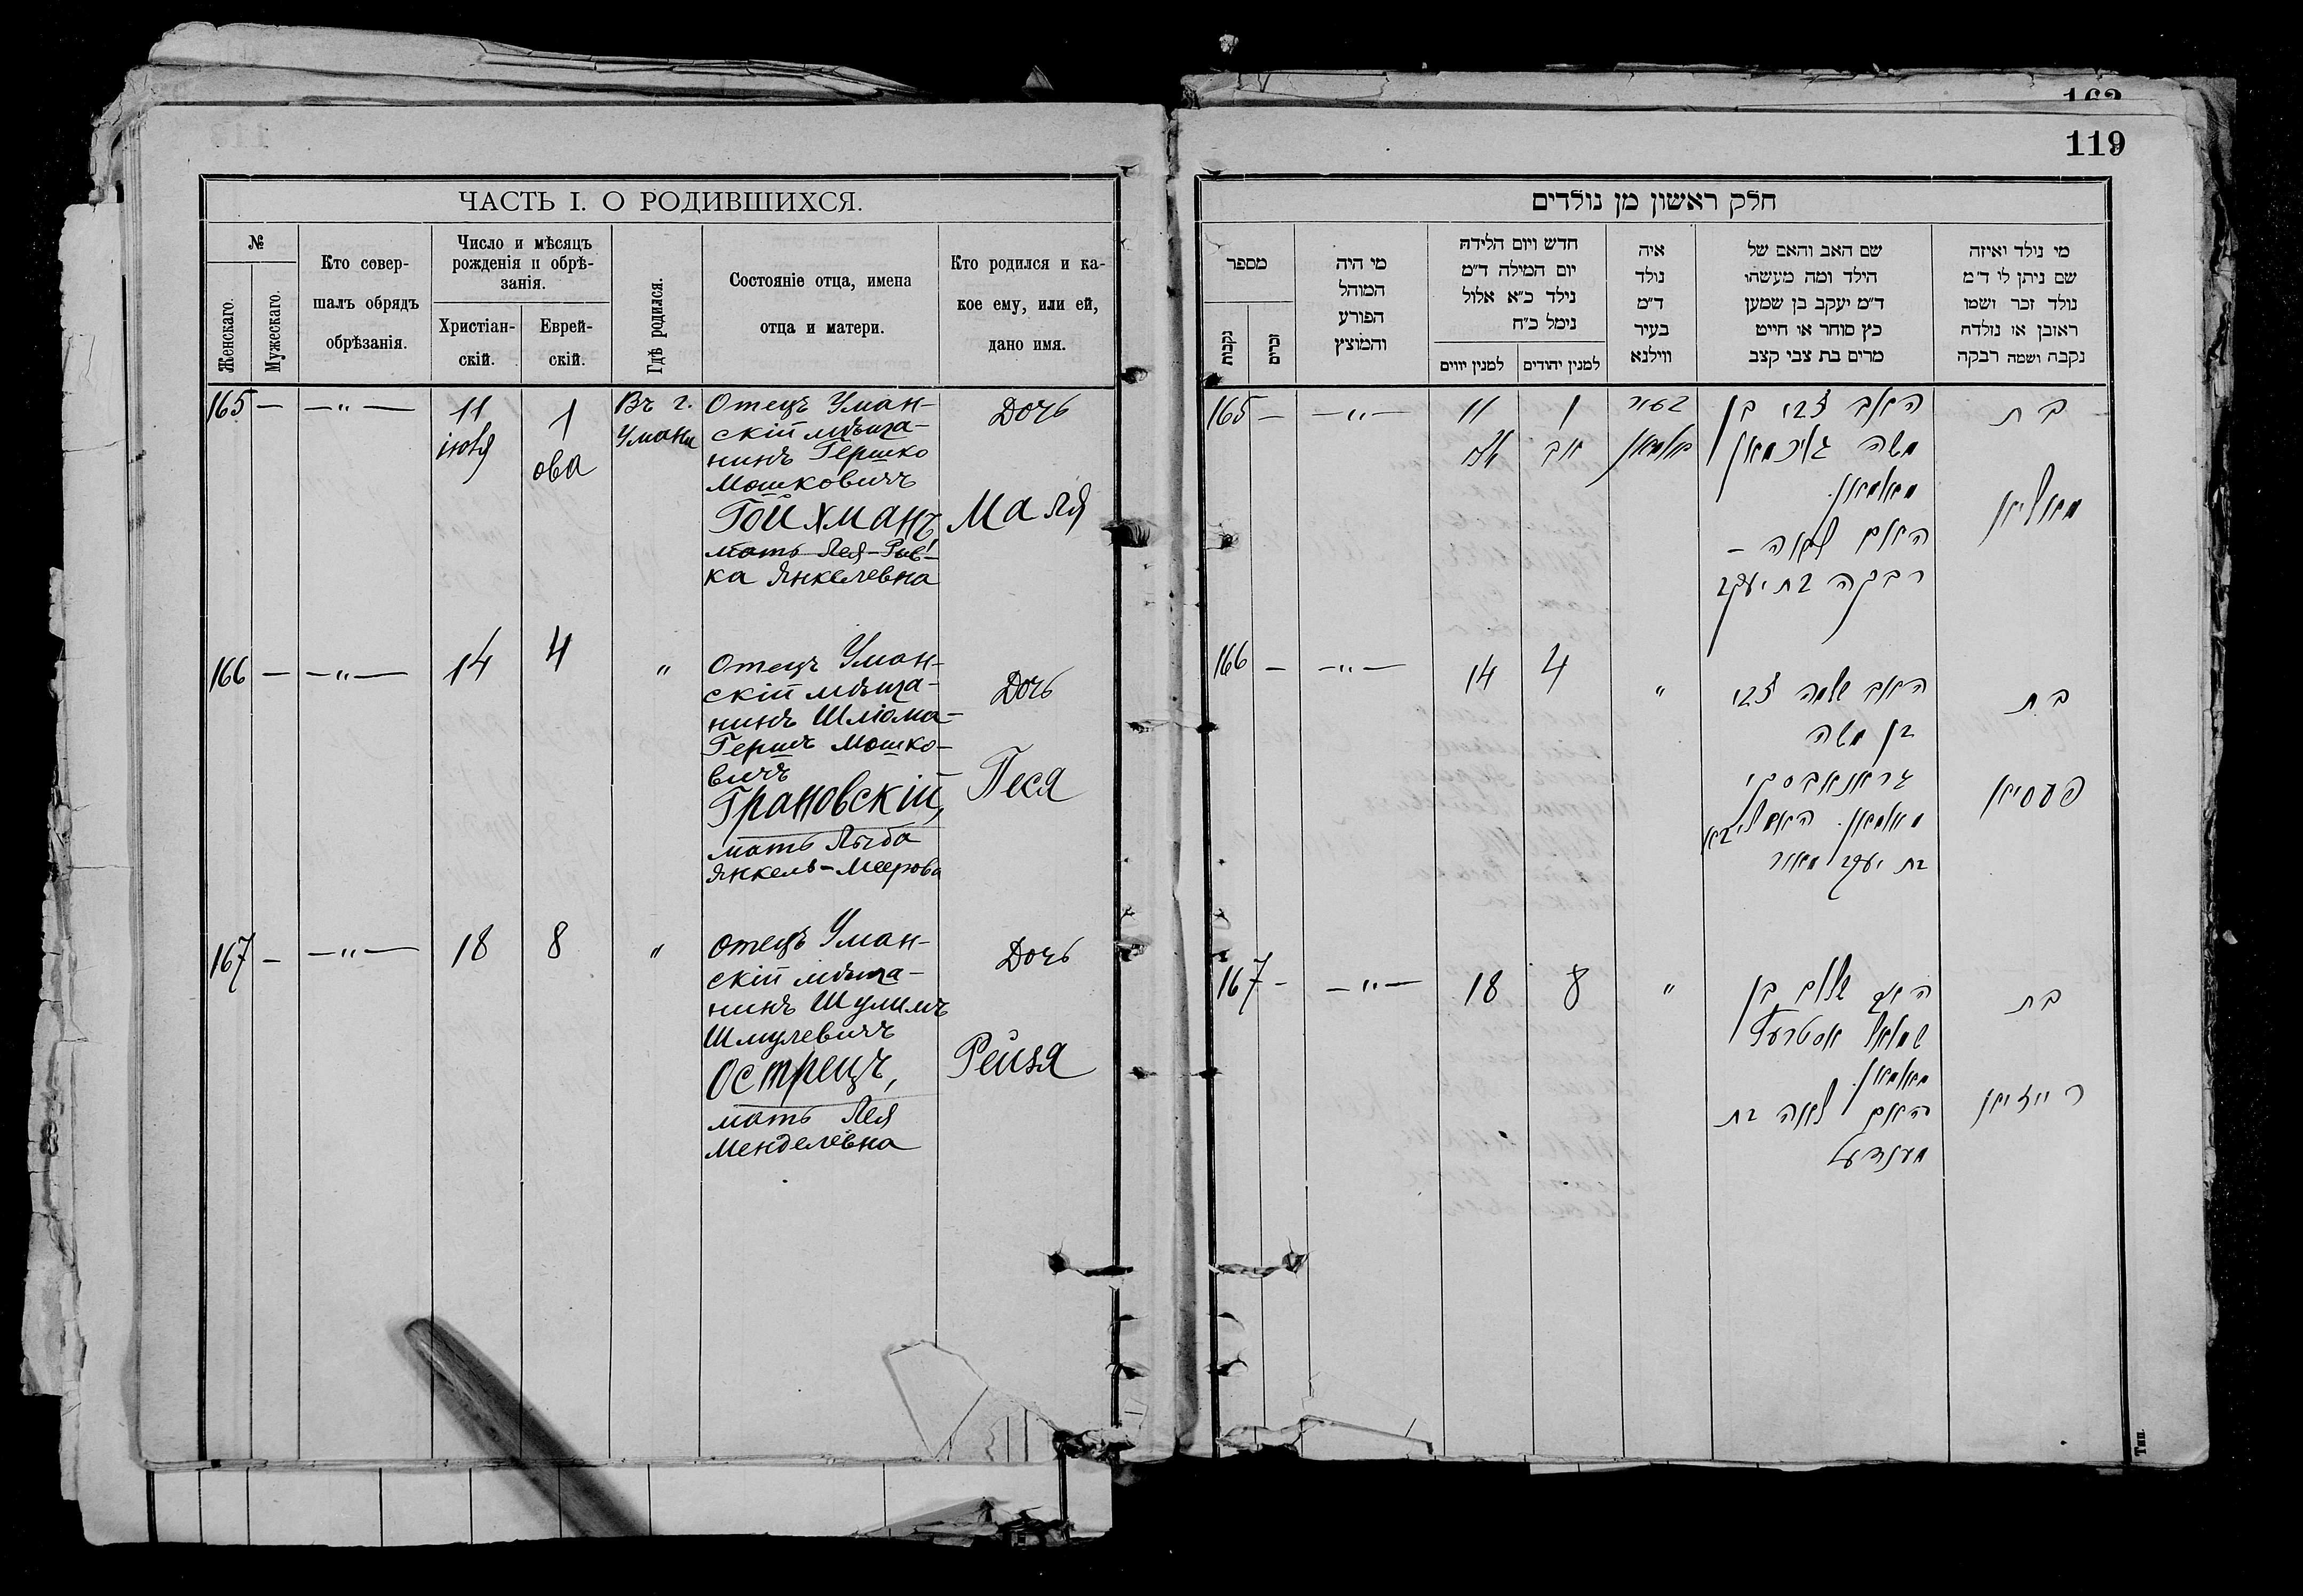 119
ЧАСТЬ I. О РОДИВШИХСЯ.
№
Женскаго.
Мужескаго.
Кто совер-
шалъ обрядъ
обрѣзанія.
Число и мѣсяцъ
рожденія и обрѣ-
занія.
Христіан-
скій.
Еврей-
скій.
Гдѣ родился.
Состояніе отца, имена
отца и матери.
Кто родился и ка-
кое ему, или ей,
дано имя.
165 — —"— 11 1 Въ г.
іюля ова Умани
Отецъ Уман-
скій мѣща-
нинъ Гершко
Мошковичъ
Гойхманъ
мать Лея-Рив-
ка Янкелевна
Дочь
Маля
166 — —"— 14 4 "
Отецъ Уман-
скій мѣща-
нинъ Шліома-
Гершъ Мошко-
вичъ
Грановскій,
мать Лыба
Янкель-Меерова
Дочь
Песя
167 — —"— 18 8 "
Отецъ Уман-
скій мѣща-
нинъ Шулимъ
Шмулевичъ
Острецъ,
мать Лея
Менделевна
Дочь
Рейзя
חלק ראשון מן נולדים
מספר
נקבות
זכרים
מי היה
המוהל
הפורע
והמוצץ
חדש ויום הלידה
יום המילה ד״מ
נילד כ״א אלול
נימל כ״ח
למנין יווים
למנין יהודים
איה
נולד
ד״מ
בעיר
ווילנא
שם האב והאם של
הילד ומה מעשהו
ד״מ יעקב בן שמען
כץ סוחר או חייט
מרים בת צבי קצב
מי נולד ואיזה
שם ניתן לי ד״מ
נולד זכר ושמו
ראובן או נולדה
נקבה ושמה רבקה
165 — —"— 11 1 בעיר
אב
האב צבי בן
משה גויכמאן
האם לאה —
רבקה בת יעקב
בת
166 — —"— 14 4 "
האב שלמה צבי
בן משה
גראנאווסקי
בת יעקב מאיר
בת
פעסיא
167 — —"— 18 8 "
האב שלום בן
שמואל אסטרעץ
והאם לאה בת
מענדעל
בת
רייזיא
Тип.